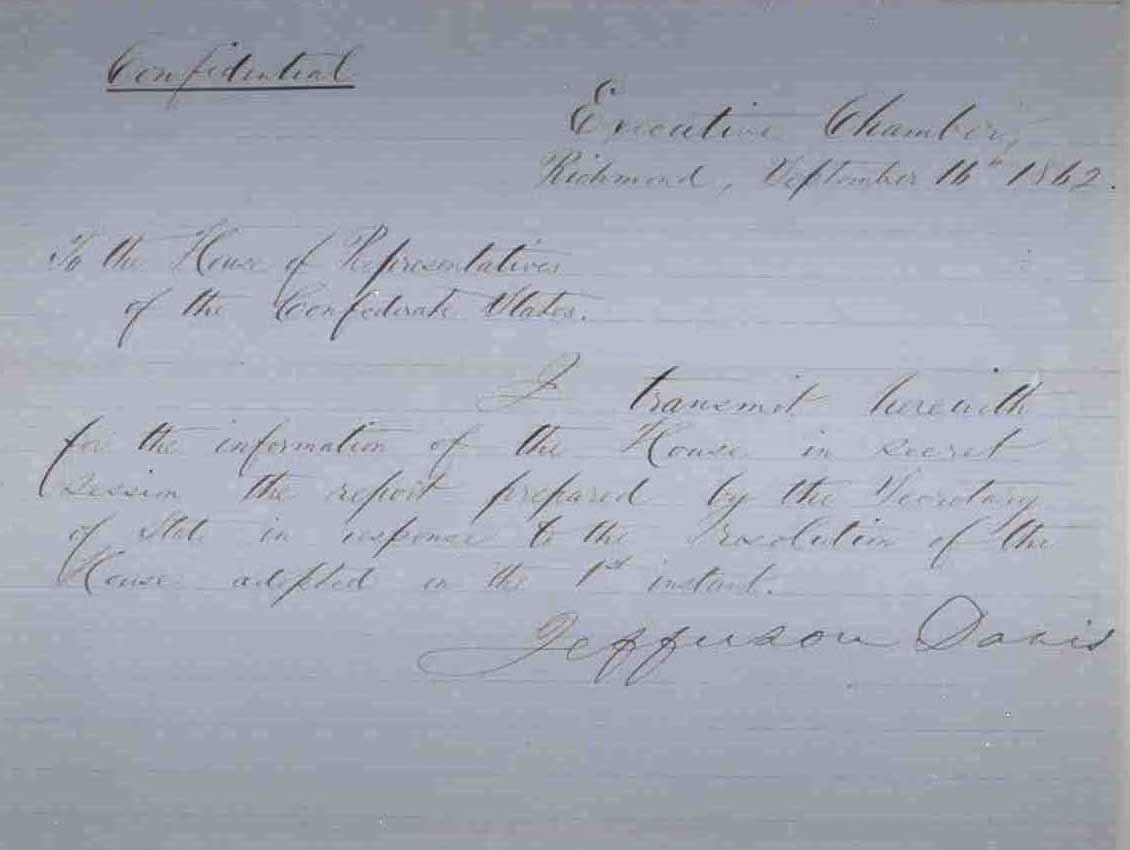 Confidential
Executive Chamber,
Richmond, September 16th 1862.
To the House of Representatives
of the Confederate States.
I transmit herewith
for the information of the House in secret
session the report prepared by the Secretary
of State in response to the resolution of the
House adopted on the 1st instant.
Jefferson Davis